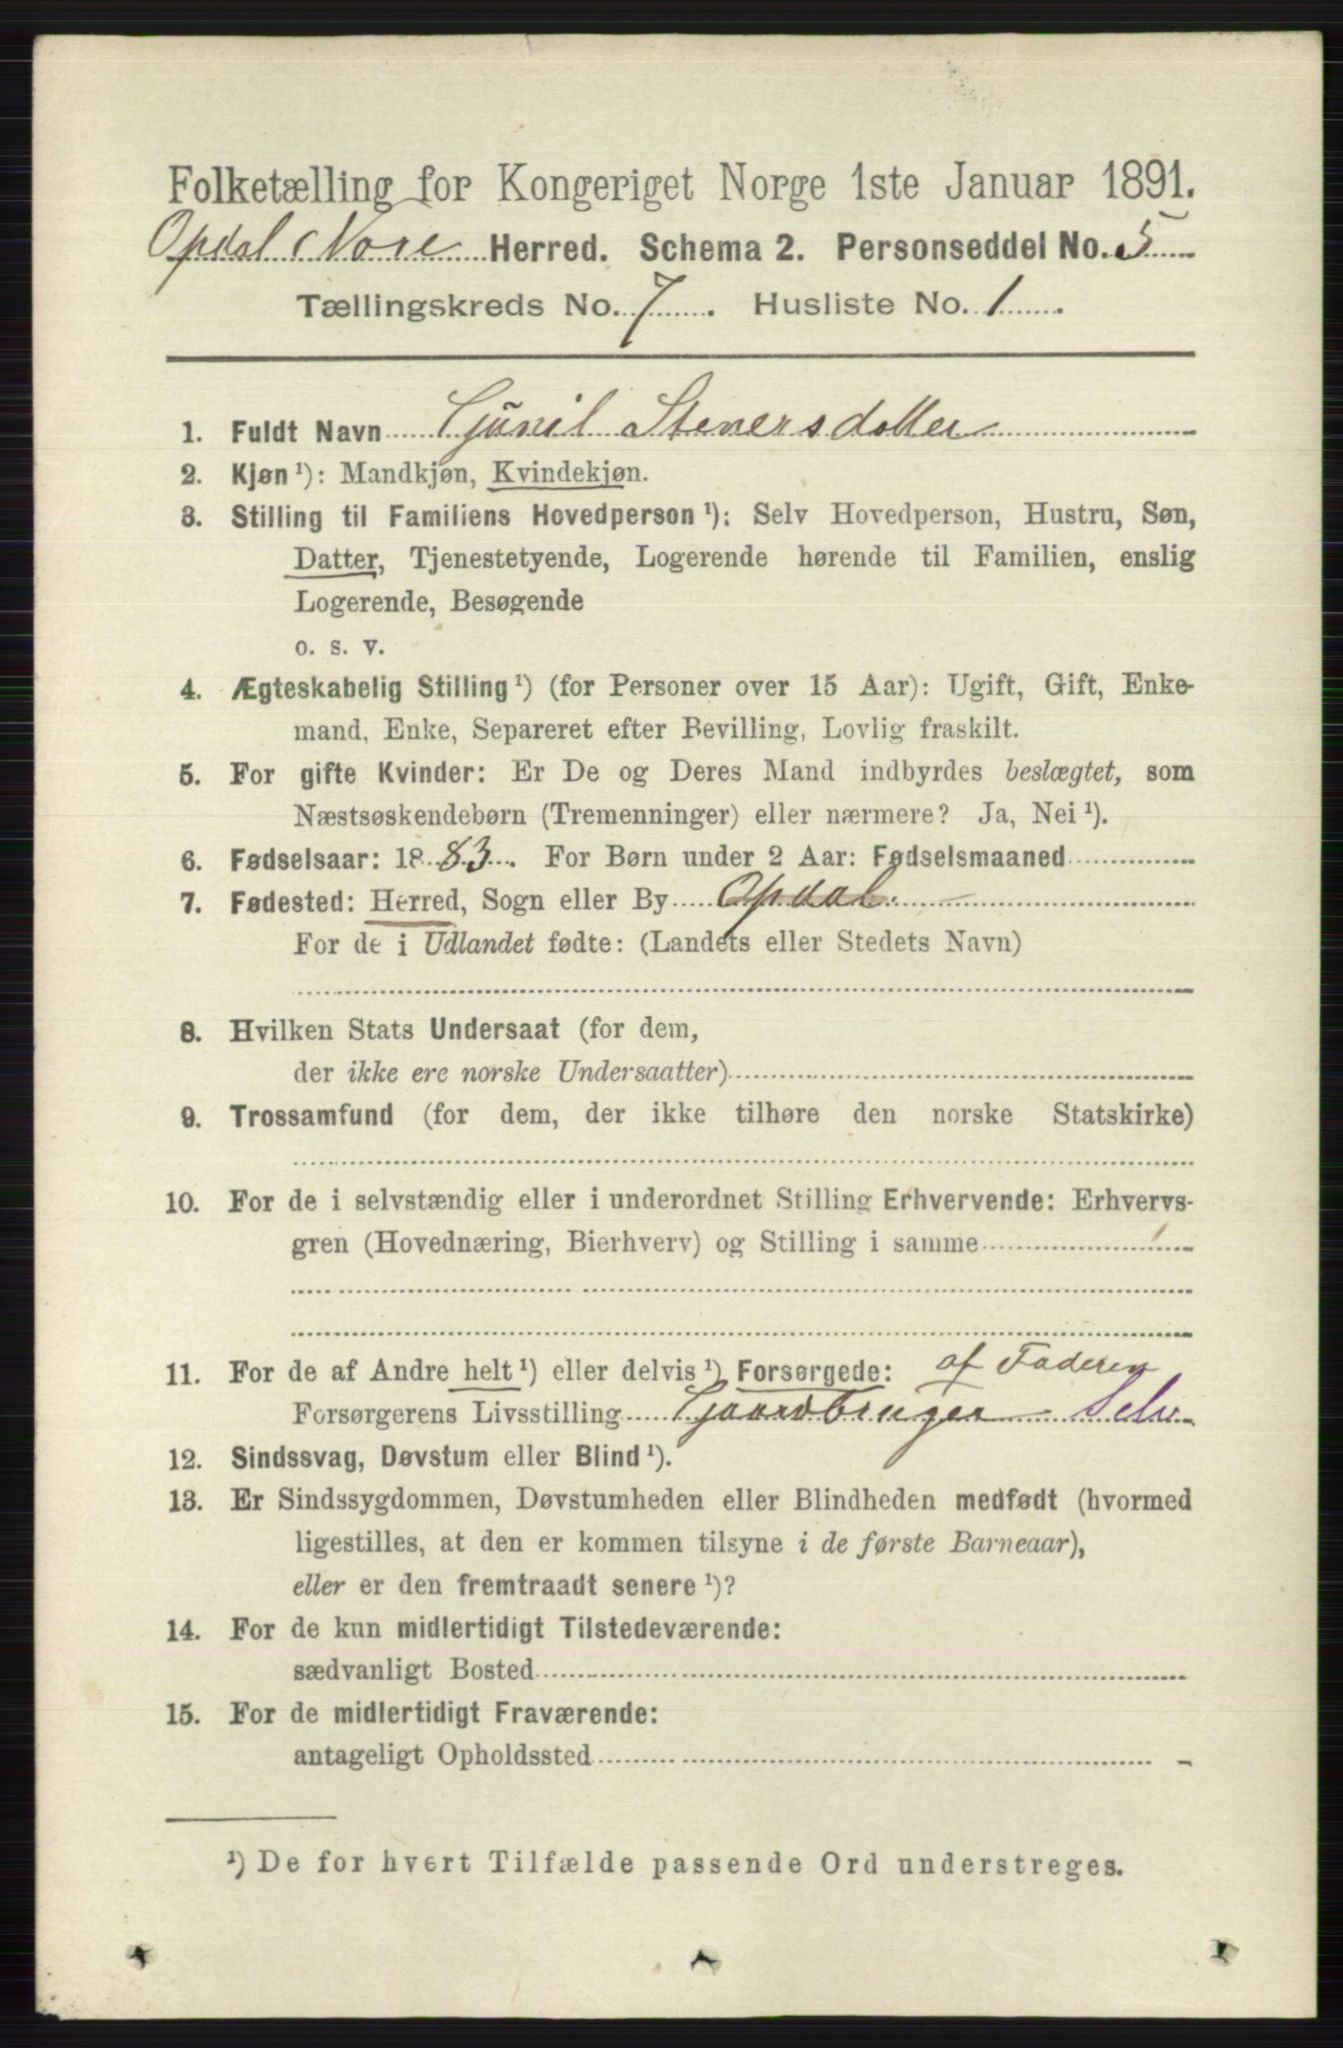 Folketælling for Kongeriget Norge 1ste Januar 1891.
Opdal Nore Herred. Schema 2. Personseddel No. 5
Tællingskreds No. 7. Husliste No. 1.
1. Fuldt Navn Gunil Stenersdatter
2. Kjøn ¹): Mandkjøn, Kvindekjøn.
3. Stilling til Familiens Hovedperson ¹): Selv Hovedperson, Hustru, Søn,
Datter, Tjenestetyende, Logerende hørende til Familien, enslig
Logerende, Besøgende
o. s. v.
4. Ægteskabelig Stilling ¹) (for Personer over 15 Aar): Ugift, Gift, Enke-
mand, Enke, Separeret efter Bevilling, Lovlig fraskilt.
5. For gifte Kvinder: Er De og Deres Mand indbyrdes beslægtet, som
Næstsøskendebørn (Tremenninger) eller nærmere? Ja, Nei ¹).
6. Fødselsaar: 1883. For Børn under 2 Aar: Fødselsmaaned
7. Fødested: Herred, Sogn eller By Opdal
For de i Udlandet fødte: (Landets eller Stedets Navn)
8. Hvilken Stats Undersaat (for dem,
der ikke ere norske Undersaatter)
9. Trossamfund (for dem, der ikke tilhøre den norske Statskirke)
10. For de i selvstændig eller i underordnet Stilling Erhvervende: Erhvervs-
gren (Hovednæring, Bierhverv) og Stilling i samme
11. For de af Andre helt ¹) eller delvis ¹) Forsørgede: af Faderen
Forsørgerens Livsstilling Gaardbruger Selv
12. Sindssvag, Døvstum eller Blind ¹).
13. Er Sindssygdommen, Døvstumheden eller Blindheden medfødt (hvormed
ligestilles, at den er kommen tilsyne i de første Barneaar),
eller er den fremtraadt senere ¹)?
14. For de kun midlertidigt Tilstedeværende:
sædvanligt Bosted
15. For de midlertidigt Fraværende:
antageligt Opholdssted
¹) De for hvert Tilfælde passende Ord understreges.